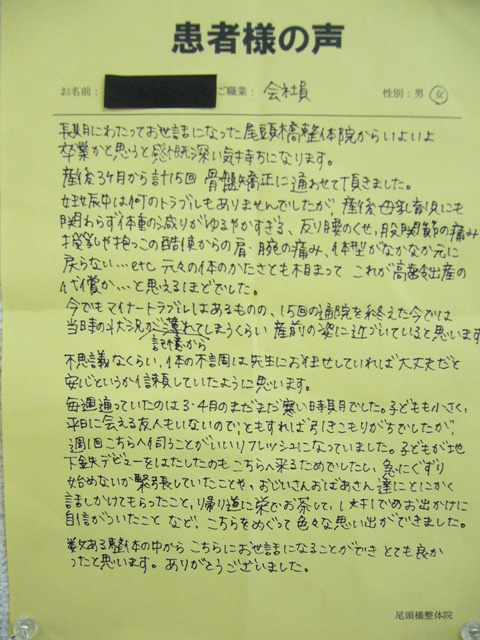 患者様の声
お名前： ご職業： 会社員 性別：男 女
長期にわたってお世話になった尾頭橋整体院からいよいよ
卒業かと思うと感慨深い気持ちになります。
産後3ヶ月から計15回 骨盤矯正に通わせて頂きました。
妊娠中は何のトラブルもありませんでしたが、産後母乳育児にも
関わらず体重の減りがゆるやかすぎる、反り腰のくせ、股関節の痛み
授乳や抱っこの酷使からの肩・腕の痛み、体型がなかなか元に
戻らない…etc 元々の体のかたさとも相まって これが高齢出産の
代償か…と思えるほどでした。
今でもマイナートラブルはあるものの、15回の通院を終えた今では
当時の状況が記憶から薄れてしまうくらい 産前の姿に近づいていると思います
不思議なくらい、体の不調は先生にお任せしていれば大丈夫だと
安心というか信頼していたように思います。
毎週通っていたのは3・4月のまだまだ寒い時期でした。子どもも小さく、
平日に会える友人もいないので、ともすれば引きこもりがちでしたが、
週1回こちらへ伺うことがいいリフレッシュになっていました。子どもが地
下鉄デビューをはたしたのも こちらへ来るためでしたし、急にぐずり
始めないか緊張していたことや、おじいさんおばあさん達にとにかく
話しかけてもらったこと、帰り道に栄でお茶して、1人でのお出かけに
自信がついたこと など、こちらをめぐって色々な思い出ができました。
数ある整体の中から こちらにお世話になることができ とても良か
ったと思います。ありがとうございました。
尾頭橋整体院